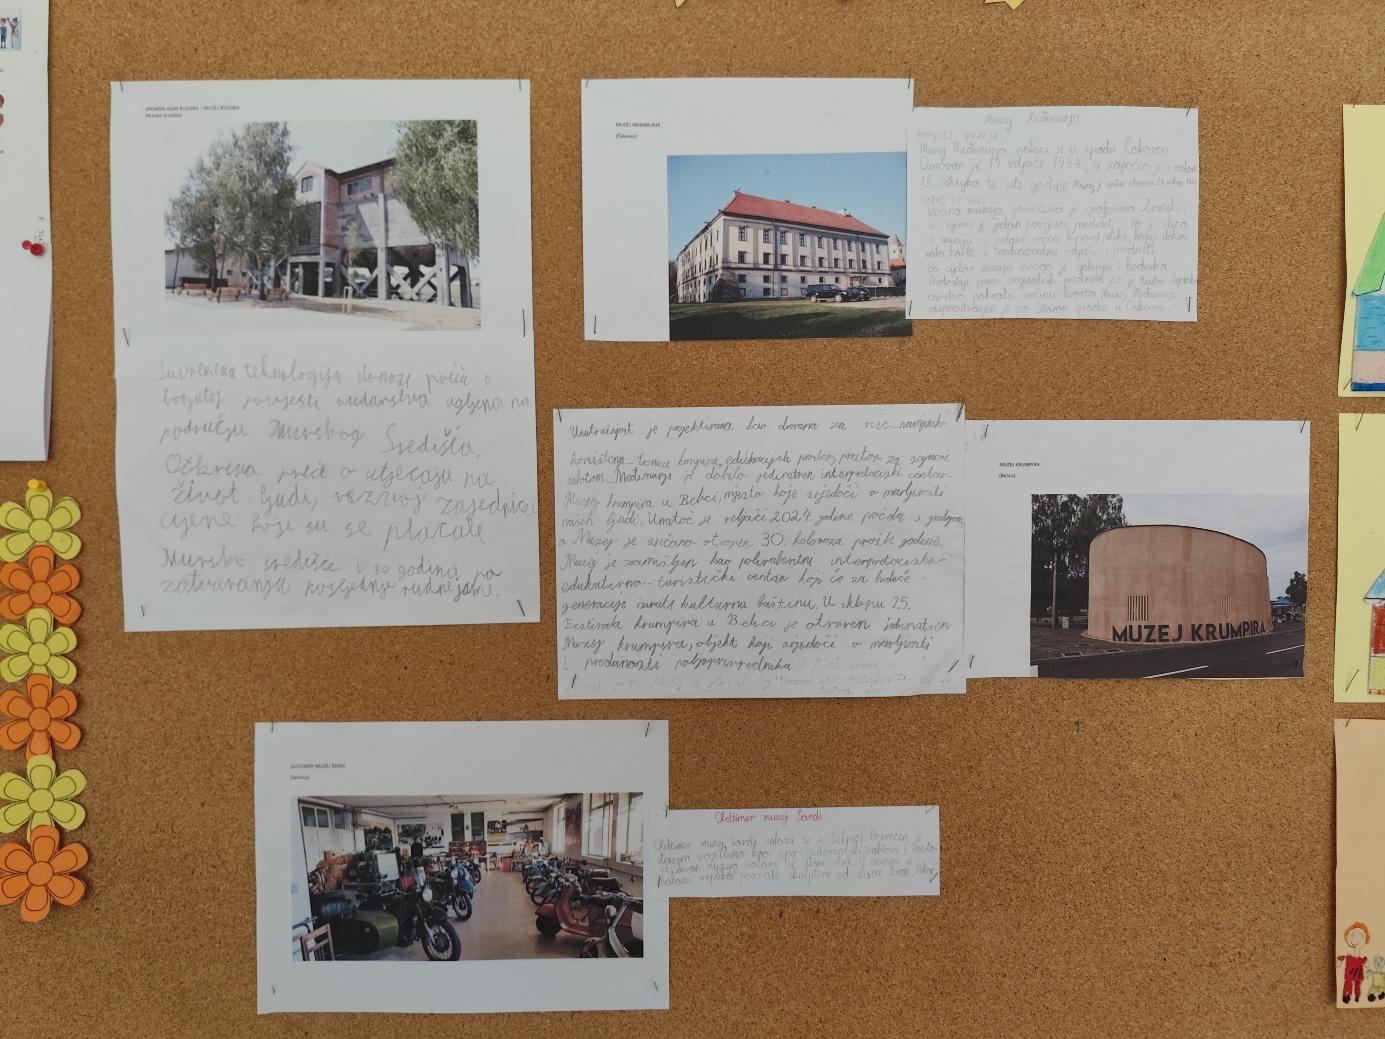 SPOMEN DOM RUDARA – MUZEJ RUDARA
Mursko Središće
Suvremena tehnologija donosi priče o
bogatoj povijesti rudarstva ugljena na
području Murskog Središća.
Otkriva priče o utjecaju na
život ljudi, razvoj zajednice i
cijene koje su se plaćale.
Mursko središće i 50 godina po
zatvaranju posljednje rudne jame.
MUZEJ MEĐIMURJA
(Čakovec)
Muzej Međimurja
POVIJEST MUZEJA
Muzej Međimurja nalazi se u gradu Čakovcu.
Osnovan je 19. veljače 1954, a započeo je s radom
15. ožujka te iste godine. Muzej je
Većina muzeja posvećena je grofovima Zrinski
u njemu je jedan povijesni predmet i to je žlica.
U muzeju se nalaze razni kipovi, slike, kopije dokume-
nata, karte i tradicionalna odjeća i predmeti.
Po cijelom muzeju mnogo je galerija i hodnika.
puno originalnih predmeta jer je Austro-Ugarsko
carstvo pokralo većinu dvorca. Muzej Međimurja
rasprostranjen je po Starom gradu u Čakovcu.
Unutrašnjost je projektirana kao dvorana za više namjensko
korištenje – tržnica krumpira, edukacijski prostor, prostor za sajmove
subotom. Međimurje je dobilo jedinstven interpretacijski centar-
Muzej krumpira u Belici, mjesto koje svjedoči o marljivosti
naših ljudi. Unatoč je veljači 2024. godine počela s gradnjom
a Muzej je svečano otvoren 30. kolovoza prošle godine.
Muzej je zamišljen kao polivalentni interpretacijsko-
edukativno-turistički centar koji će za buduće
generacije čuvati kulturnu baštinu. U sklopu 25.
Festivala krumpira u Belici je otvoren jedinstven
Muzej krumpira, objekt koji svjedoči o marljivosti
i predanosti poljoprivrednika.
MUZEJ KRUMPIRA
(Belica)
MUZEJ KRUMPIRA
OLDTIMER MUZEJ ŠARDI
(Selnica)
Oldtimer muzej Šardi
Oldtimer muzej Šardi nalazi se u Selnici. Posvećen je
starijim vozilima kao npr. automobili, traktori i moto-
ri. Izvan muzeja nalazi se stari vlak. U muzeju se
nalazi replika poznate skulpture od slame